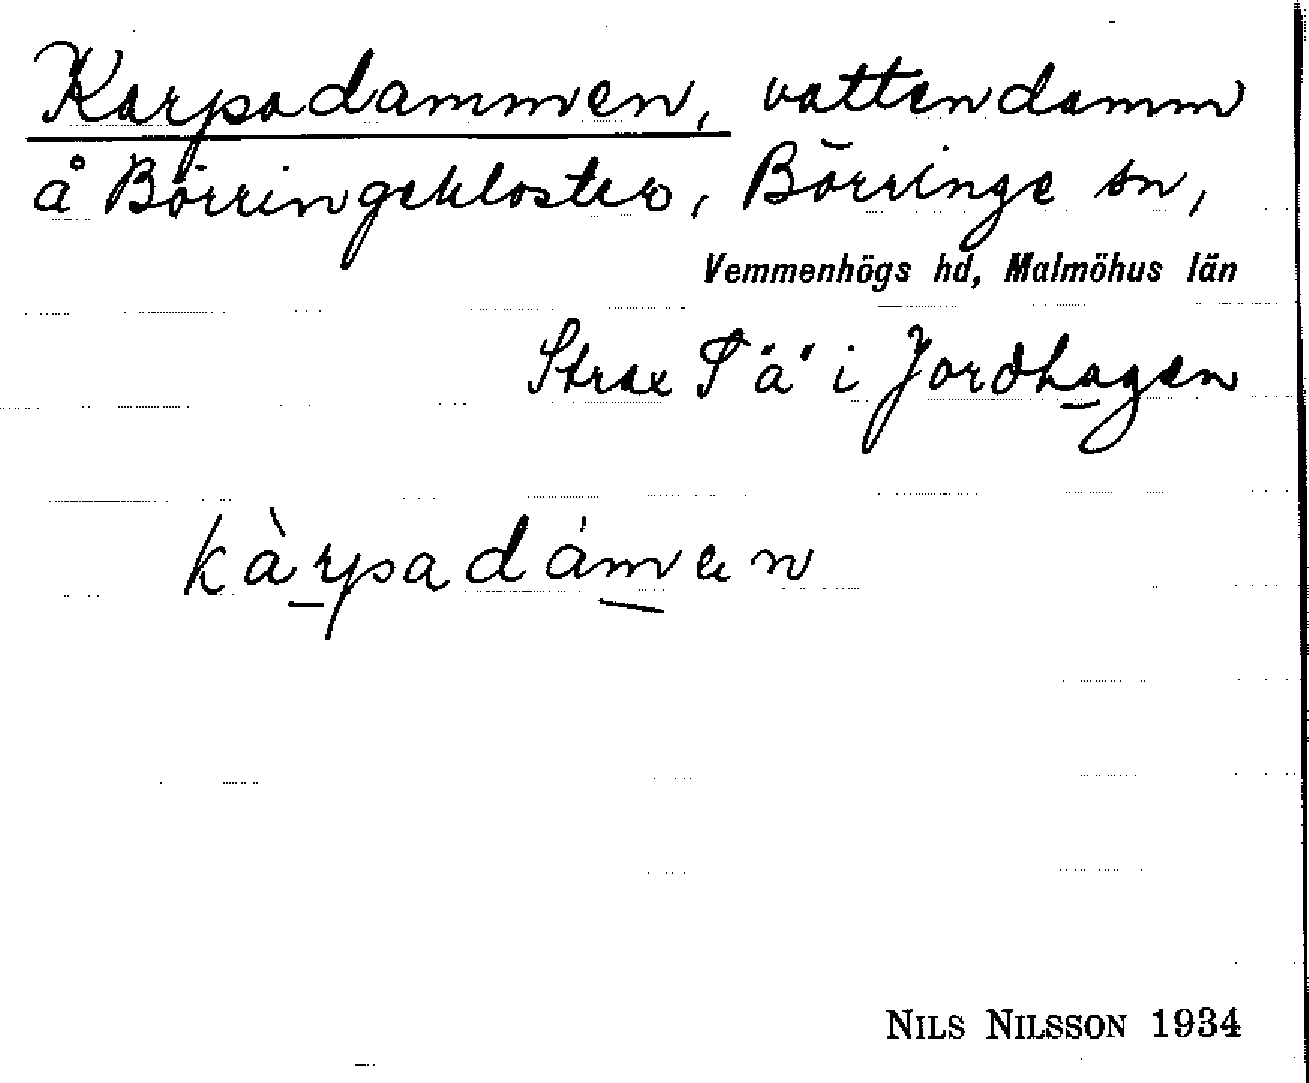 Karpadammen, vattendamm
å Börringekloster, Börringe sn,
Vemmenhögs hd, Malmöhus län
Strax S "ä" i Jordhagen
kàrpadámen
NILS NILSSON 1934